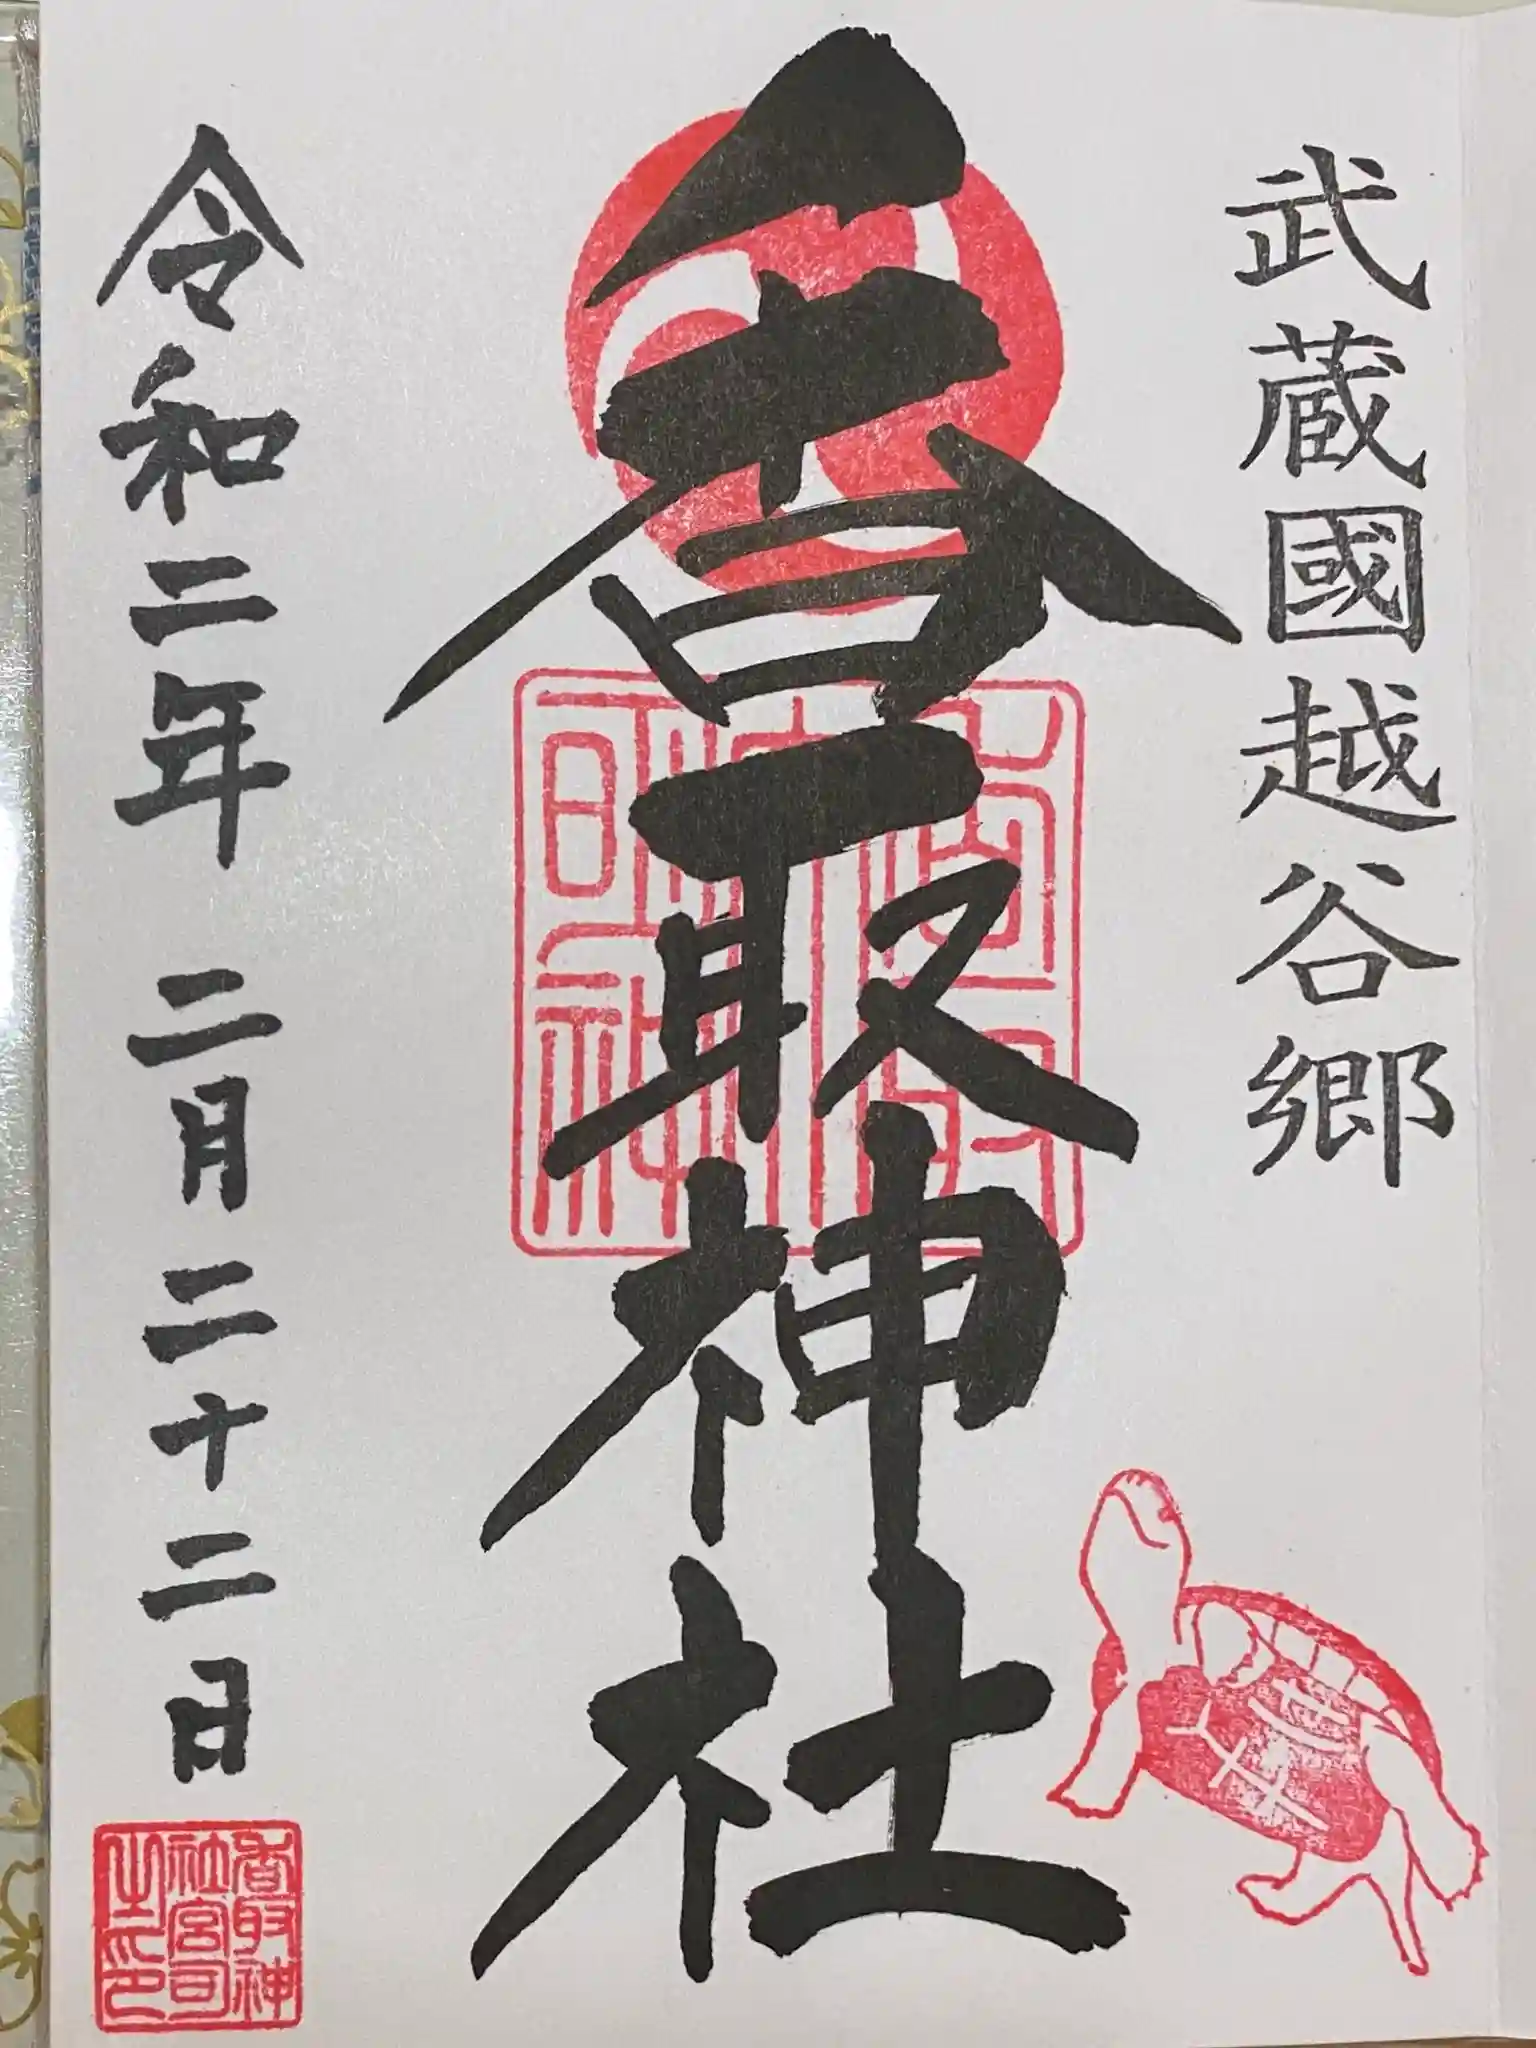 武蔵國越谷郷
香取神社
令和二年 二月二十二日
香取神
社宮司
之印